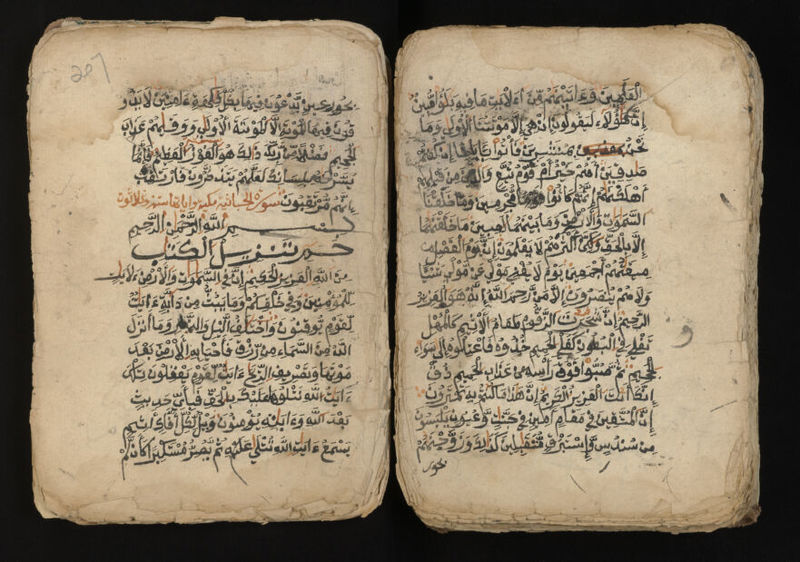 العلمين وءاتينهم من الايت ما فيه بلؤا مبين
ان هؤلاء ليقولون ان هي الا موتتنا الاولى وما
نحن بمنشرين فاتوا بابائنا ان كنتم
صدفين اهم خير ام قوم تبع والذين من قبلهم
اهلكنهم انهم كانوا مجرمين وما خلقنا
السموت والارض وما بينهما لعبين ما خلقنهما
الا بالحق ولكن اكثرهم لا يعلمون ان يوم الفصل
ميقتهم اجمعين يوم لا يغني مولى عن مولى شيئا
ولا هم ينصرون الا من رحم الله انه هو العزيز
الرحيم ان شجرت الزقوم طعام الاثيم كالمهل
تغلي في البطون كغلي الحميم خذوه فاعتلوه الى سواء
الجحيم ثم صبوا فوق رأسه من عذاب الحميم ذق
انك انت العزيز الكريم ان هذا ما كنتم به تمترون
ان المتقين في مقام امين في جنت وعيون يلبسون
من سندس واستبرق متقبلين كذلك وزوجنهم
بحور
207
بحور عين يدعون فيها بكل فكهة ءامنين لا يذو
قون فيها الموت الا الموتة الاولى ووقيهم عذاب
الجحيم فضلا من ربك ذلك هو الفوز العظيم فانما
يسرنه بلسانك لعلهم يتذكرون فارتقب
انهم مرتقبون سورة الجاثية مكية واياتها ست وثلاثون
بسم الله الرحمن الرحيم
حم تنزيل الكتب
من الله العزيز الحكيم ان في السموت والارض لايت
للمؤمنين وفي خلقكم وما يبث من دابة ءايت
لقوم يوقنون واختلف اليل والنهار وما انزل
الله من السماء من رزق فاحيا به الارض بعد
موتها وتصريف الريح ءايت لقوم يعقلون تلك
ءايت الله نتلوها عليك بالحق فباي حديث
بعد الله وءايته يؤمنون ويل لكل افاك اثيم
يسمع ءايت الله تتلى عليه ثم يصر مستكبرا كان لم